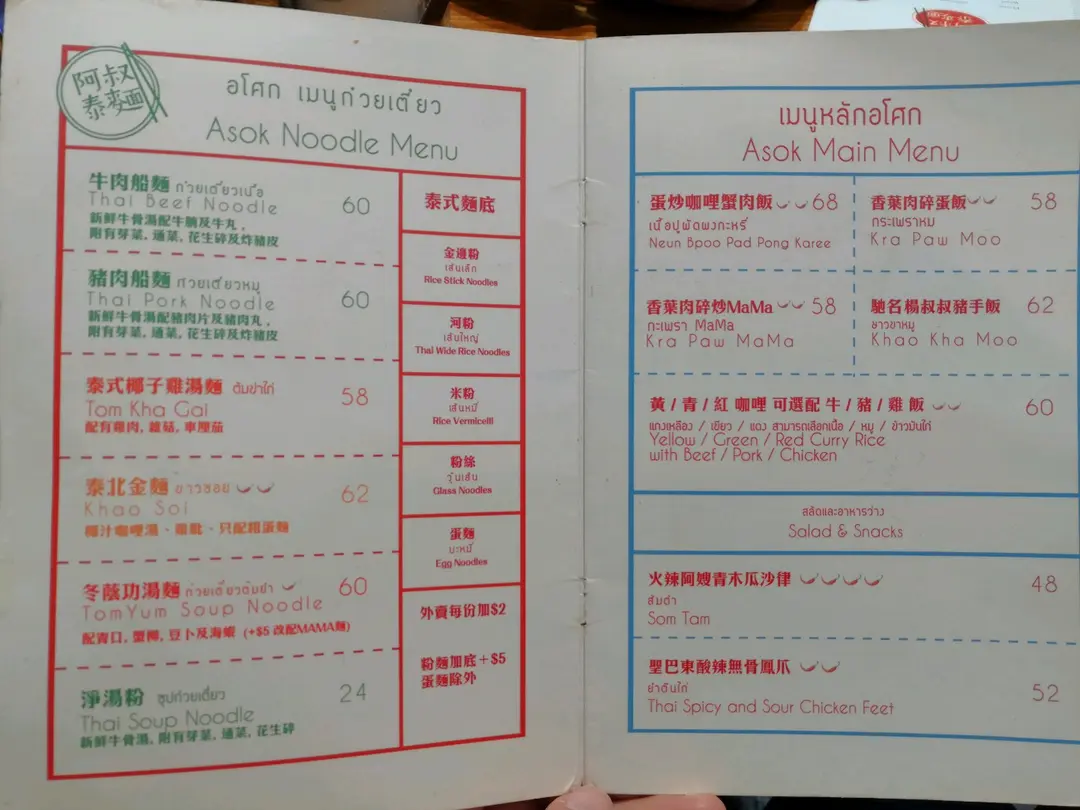 阿叔
泰麵
อโศก เมนูก๋วยเตี๋ยว
Asok Noodle Menu
牛肉船麵 ก๋วยเตี๋ยวเนื้อ 60
Thai Beef Noodle
新鮮牛骨湯配牛腩及牛丸,
附有芽菜, 通菜, 花生碎及炸豬皮
豬肉船麵 ก๋วยเตี๋ยวหมู 60
Thai Pork Noodle
新鮮牛骨湯配豬肉片及豬肉丸,
附有芽菜, 通菜, 花生碎及炸豬皮
泰式椰子雞湯麵 ต้มข่าไก่ 58
Tom Kha Gai
配有雞肉, 雜菇, 車厘茄
泰北金麵 ข้าวซอย 62
Khao Soi
椰汁咖喱湯、雞髀、只配粗蛋麵
冬蔭功湯麵 ก๋วยเตี๋ยวต้มยำ 60
TomYum Soup Noodle
配青口, 蟹柳, 豆卜及海蝦 (+$5 改配MAMA麵)
淨湯粉 ซุปก๋วยเตี๋ยว 24
Thai Soup Noodle
新鮮牛骨湯, 附有芽菜, 通菜, 花生碎
泰式麵底
金邊粉
เส้นเล็ก
Rice Stick Noodles
河粉
เส้นใหญ่
Thai Wide Rice Noodles
米粉
เส้นหมี่
Rice Vermicelli
粉絲
วุ้นเส้น
Glass Noodles
蛋麵
บะหมี่
Egg Noodles
外賣每份加$2
粉麵加底+$5
蛋麵除外
เมนูหลักอโศก
Asok Main Menu
蛋炒咖喱蟹肉飯 68
เนื้อปูผัดผงกะหรี่
Neun Bpoo Pad Pong Karee
香葉肉碎蛋飯 58
กระเพราหม
Kra Paw Moo
香葉肉碎炒MaMa 58
กะเพรา MaMa
Kra Paw MaMa
馳名楊叔叔豬手飯 62
ขาวขาหมู
Khao Kha Moo
黃/青/紅 咖喱 可選配 牛/豬/雞 飯 60
แกงเหลือง / เขียว / แดง สามารถเลือกเนื้อ / หมู / ข้าวมันไก่
Yellow / Green / Red Curry Rice
with Beef / Pork / Chicken
สลัดและอาหารว่าง
Salad & Snacks
火辣阿嫂青木瓜沙律 48
ส้มตำ
Som Tam
聖巴東酸辣無骨鳳爪 52
ยำตีนไก่
Thai Spicy and Sour Chicken Feet